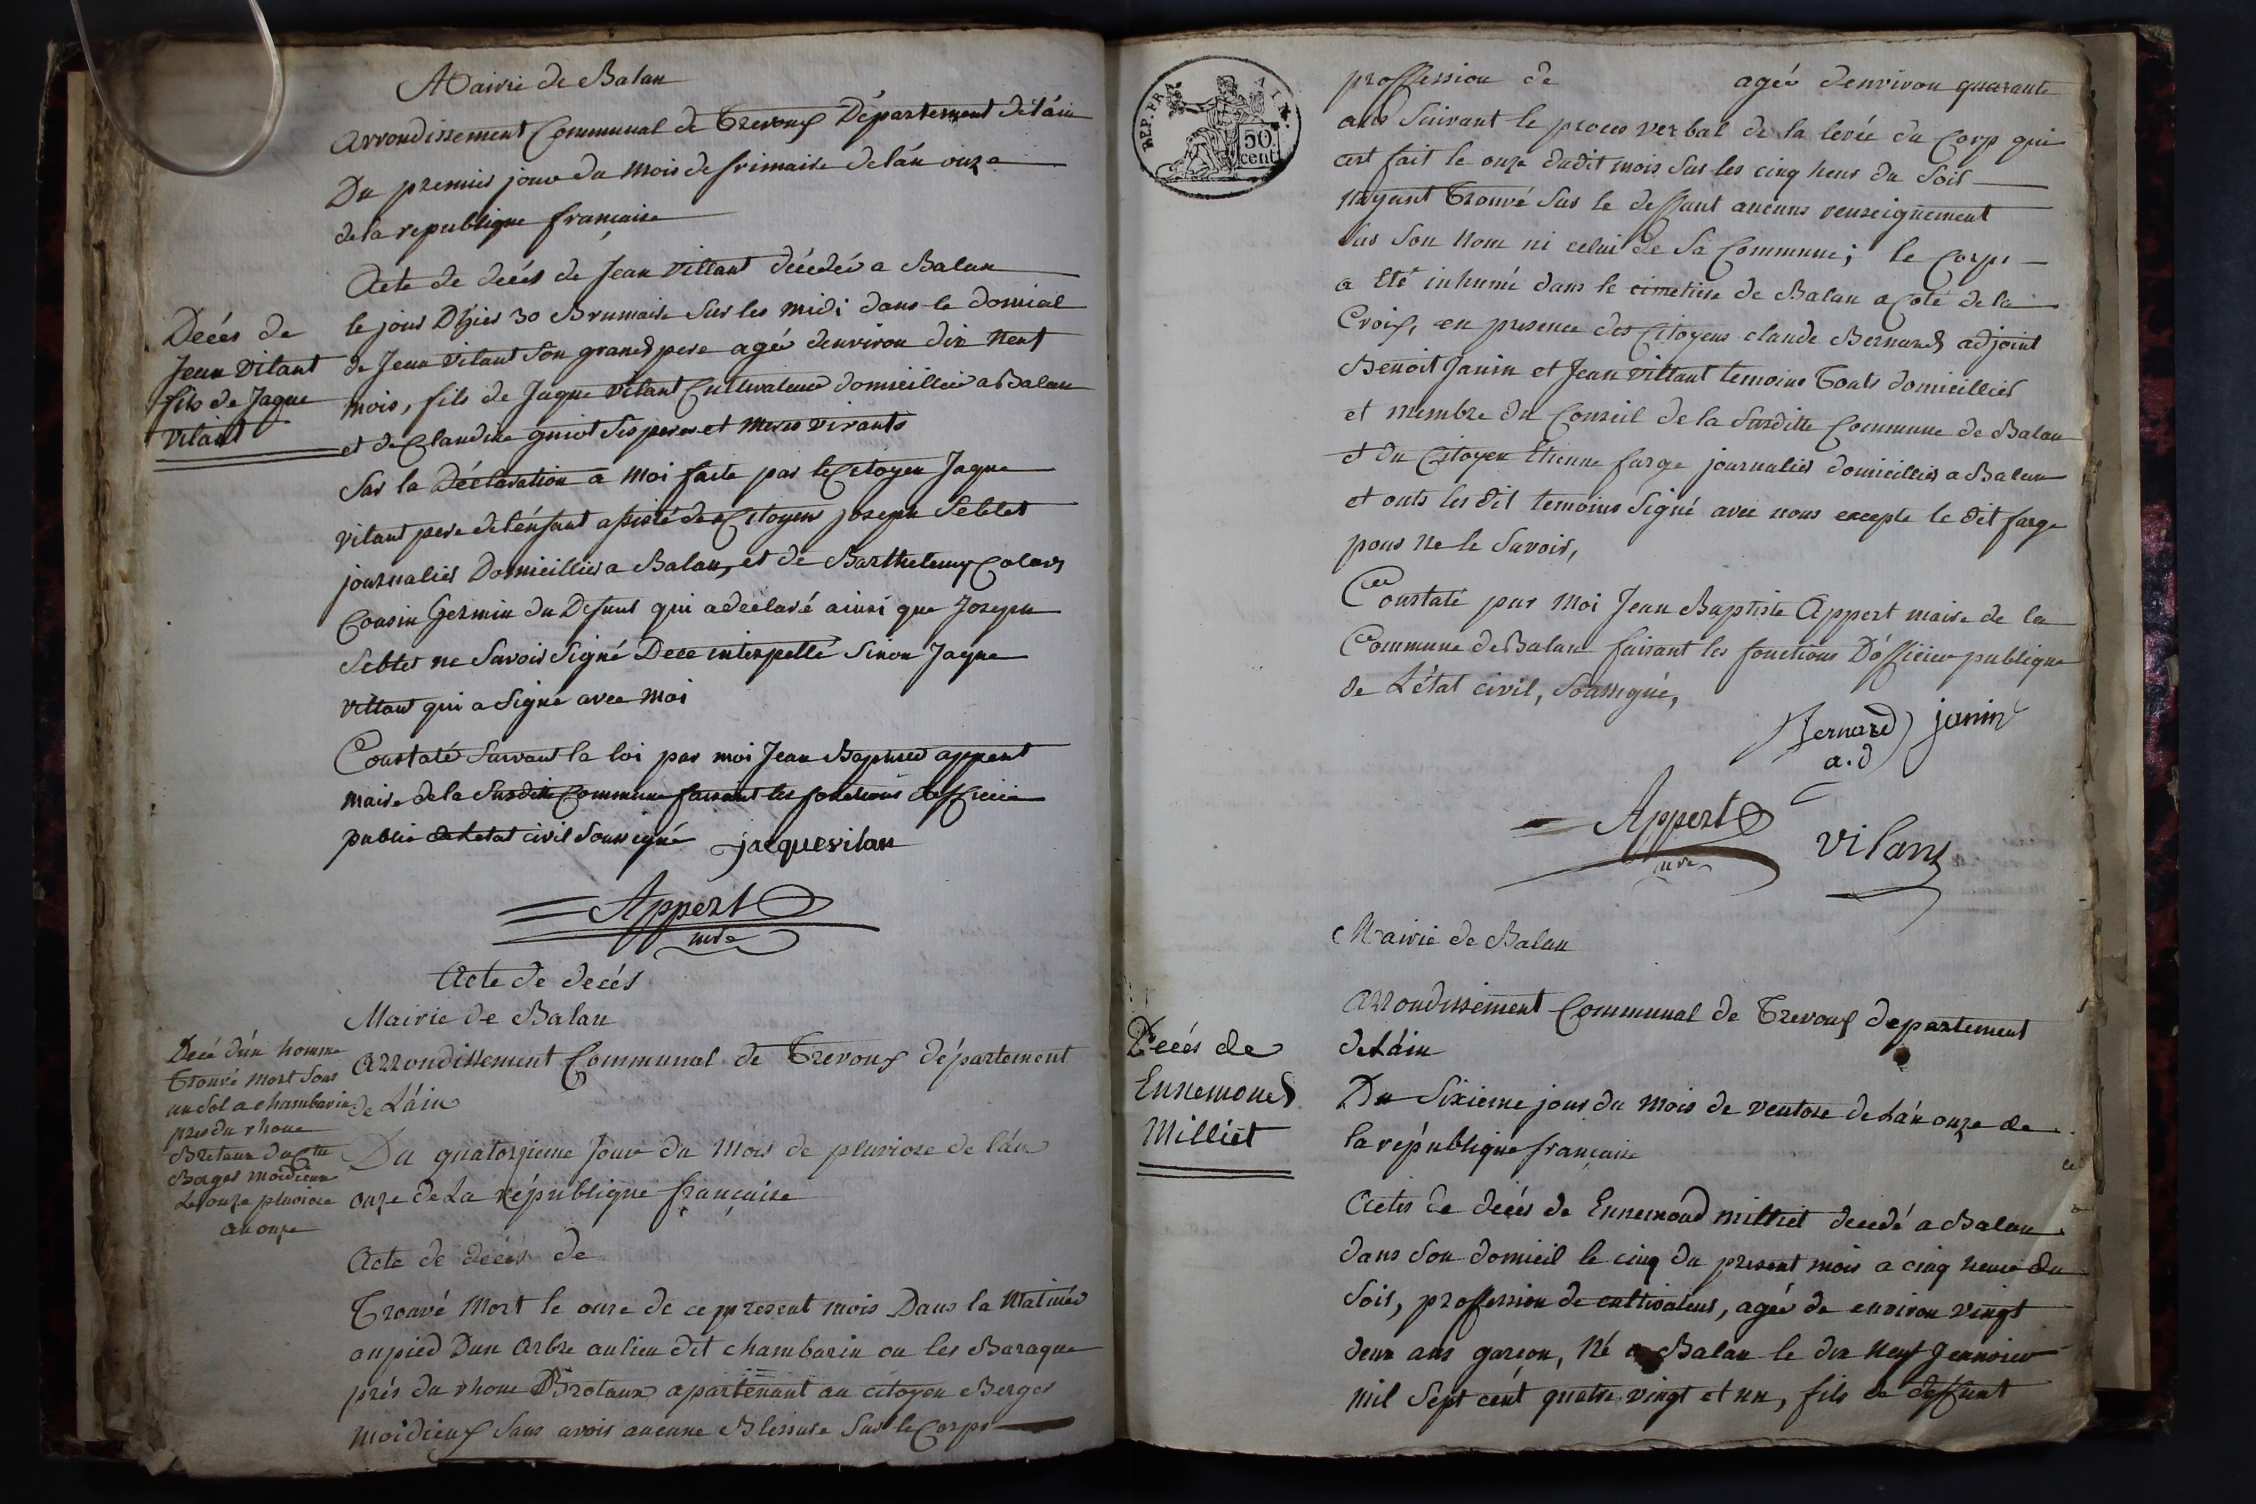 Mairie de Balan
Arrondissement Communal de Trevoux Département de láin
Du premier jour du mois de frimaire de lán onze
de la republique francaise
Acte de decés de Jean Villant décédéé a Balan
Decés de
Jean Vilant
fils de Jaque
Vilant
le jour D'hier 30 Brumaire sur les midi dans le domicil
de Jean Vilant son grand pere agée denviron dix neuf
mois, fils de Jaque Vilant Cultivateur domicilliée a Balan
et de Claudine guiot ses peres et meres vivants
Sur la Déclaration a moi faite par le Citoyen Jaque
Vilant pere de lénfant assisté des Citoyen Joseph Seblet
journalier Domicillier a Balan, et de Barthelemy
Cousin Germin du Defunt qui a declaré ainsi que Joseph
Seblet ne Savoir Signé De ce interpellé Sinon Jaque
Villant qui a Signé avec moi
Constaté Suivant la loi par moi Jean Baptiste appert
maire de la Susditte Commune faisant les fonctions dofficier
public de Letat civil Soussigné jacquevilan
Appert
mre
Acte de decés
Mairie de Balan
Decé d'ún homme
Trouvé mort sous
un Sol a chambarin
pres du rhone
Broteaux du Cten
Berges moidieux
Le onze pluviose
an onze
Arrondissement Communal de Trevoux département
de Láin
Du quatorzieme Jour du Mois de pluviose de lán
onze de La république francaise
Acte de decés de
Trouvé Mort le onze de ce present mois Dans la Matinée
au pied Dun Arbre au lieu dit chambarin ou les Baraque
prés du rhone Brotaux apartenant au citoyen Berges
moidieux Sans avoir aucune Blessure Sur le Corps
REP. FRA
50
cent
AIN.
proffession de agée denviron quarante
ans Suivant le proces verbal de la levée du Corp qui
cest fait le onze dudit mois Sur les cinq heur du Soir
nayant Trouvé Sur le deffunt aucuns renseignement
Sur Son Nom ni celui de Sa Commune; le Corps
a Eté inhumé dans le cimetiere de Balan a Coté de la
Croix, en presence des Citoyens claude Bernard adjoint
Benoit Janin et Jean Villant temoins Touts domicilliés
et membre du Conseil de la Susditte Commune de Balan
et du Citoyen Etienne farge journalier domicillier a Balan
et onts les dit temoins Signé avec nous excepte le dit farge
pour ne le Savoir,
Constaté par Moi Jean Baptiste Appert maire de la
Commune de Balan faisant les fonctions D'officier publique
de L'état civil, Soussigné,
Bernard janin
a.d
Appert
mre
Vilant
Mairie de Balan
Arrondissement Communal de Trevoux departement
de Láin
Decés de
Ennemond
Milliet
Du Sixieme jour du Mois de ventose de Lán onze de
la république francaise
Actes de decés de Ennemond milliet decedé a Balan
dans Son domicil le cinq du present mois a cinq heure du
Soir, proffession de cultivateur, agée de environ vingt
deux ans garcon, Né a Balan le dix neuf Jeanvier
mil Sept cént quatre vingt et un, fils de deffunt